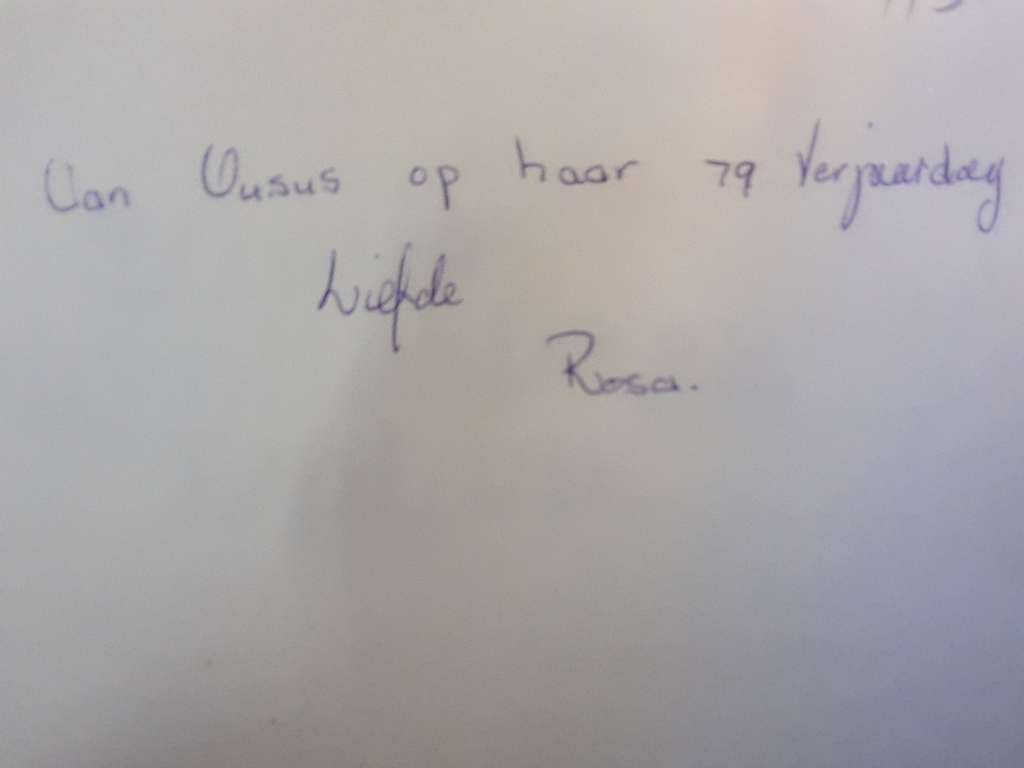 Van Ousus op haar 79 Verjaardag
Liefde
Rosa.